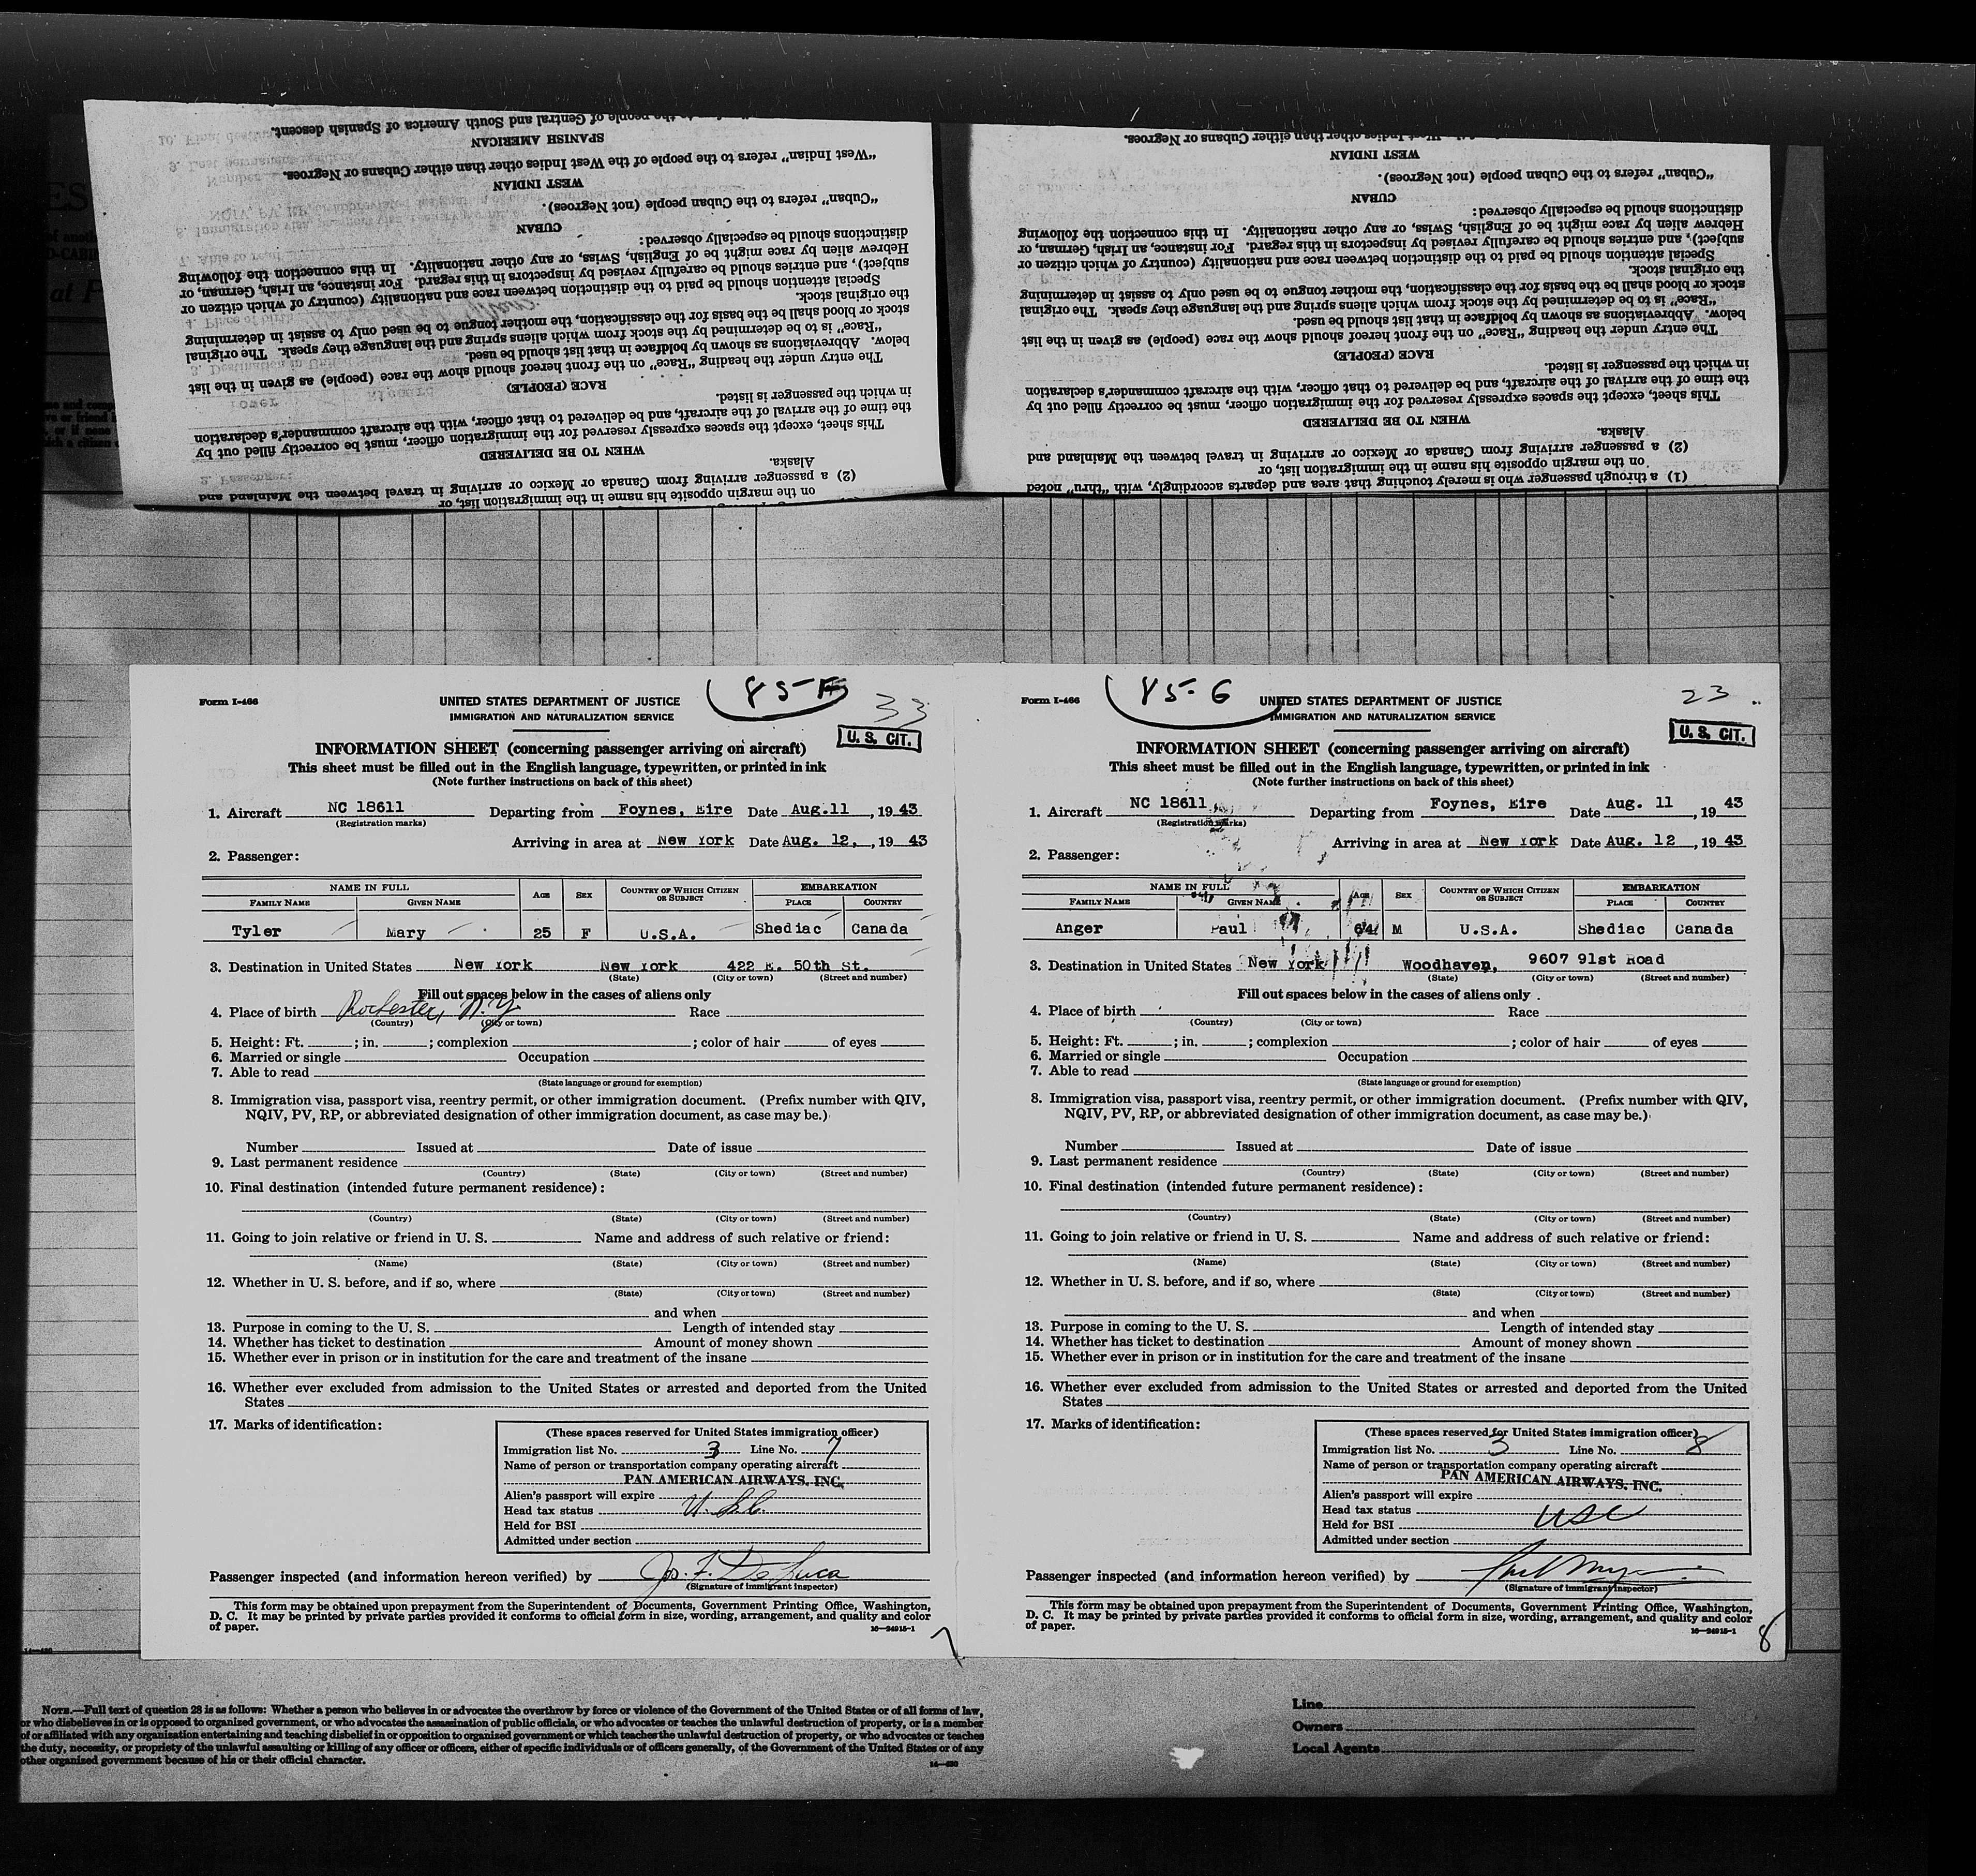 of the people of Central and South America of Spanish descent.
SPANISH AMERICAN
"West Indian" refers to the people of the West Indies other than either Cubans or Negroes.
WEST INDIAN
"Cuban" refers to the people (not Negroes).
CUBAN
distinctions should be especially observed:
Hebrew alien by race might be of English, Swiss, or any other nationality. In this connection the following
subject), and entries should be carefully revised by inspectors in this regard. For instance, an Irish, German, or
Special attention should be paid to the distinction between race and nationality (country of which citizen or
the original stock.
stock or blood shall be the basis for the classification, the mother tongue to be used only to assist in determining
"Race" is to be determined by the stock from which aliens spring and the language they speak. The original
below. Abbreviations as shown by boldface in that list should be used.
The entry under the heading "Race" on the front hereof should show the race (people) as given in the list
RACE (PEOPLE)
in which the passenger is listed.
the time of the arrival of the aircraft, and be delivered to that officer, with the aircraft commander's declaration
This sheet, except the spaces expressly reserved for the immigration officer, must be correctly filled out by
WHEN TO BE DELIVERED
Alaska.
(2) a passenger arriving from Canada or Mexico or arriving in travel between the Mainland and
on the margin opposite his name in the immigration list, or
West Indies other than either Cubans or Negroes.
WEST INDIAN
"Cuban" refers to the Cuban people (not Negroes).
CUBAN
distinctions should be especially observed:
Hebrew alien by race might be of English, Swiss, or any other nationality. In this connection the following
subject), and entries should be carefully revised by inspectors in this regard. For instance, an Irish, German, or
Special attention should be paid to the distinction between race and nationality (country of which citizen or
the original stock.
stock or blood shall be the basis for the classification, the mother tongue to be used only to assist in determining
"Race" is to be determined by the stock from which aliens spring and the language they speak. The original
below. Abbreviations as shown by boldface in that list should be used.
The entry under the heading "Race" on the front hereof should show the race (people) as given in the list
RACE (PEOPLE)
in which the passenger is listed.
the time of the arrival of the aircraft, and be delivered to that officer, with the aircraft commander's declaration
This sheet, except the spaces expressly reserved for the immigration officer, must be correctly filled out by
WHEN TO BE DELIVERED
Alaska.
(2) a passenger arriving from Canada or Mexico or arriving in travel between the Mainland and
on the margin opposite his name in the immigration list, or
(1) a through passenger who is merely touching that area and departs accordingly, with "thru" noted
Form I-466
UNITED STATES DEPARTMENT OF JUSTICE
85-F
33
IMMIGRATION AND NATURALIZATION SERVICE
U. S. CIT.
INFORMATION SHEET (concerning passenger arriving on aircraft)
This sheet must be filled out in the English language, typewritten, or printed in ink
(Note further instructions on back of this sheet)
1. Aircraft NC 18611 Departing from Foynes, Eire Date Aug.11, 19 43
(Registration marks)
Arriving in area at New York Date Aug. 12, , 19 43
2. Passenger:
NAME IN FULL AGE SEX COUNTRY OF WHICH CITIZEN OR SUBJECT EMBARKATION
FAMILY NAME GIVEN NAME PLACE COUNTRY
Tyler Mary 25 F U.S.A. Shediac Canada
3. Destination in United States New York New York 422 E. 50th St.
(State) (City or town) (Street and number)
Fill out spaces below in the cases of aliens only
4. Place of birth Rochester, N.Y. Race
(Country) (City or town)
5. Height: Ft. ; in. ; complexion ; color of hair of eyes
6. Married or single Occupation
7. Able to read
(State language or ground for exemption)
8. Immigration visa, passport visa, reentry permit, or other immigration document. (Prefix number with QIV,
NQIV, PV, RP, or abbreviated designation of other immigration document, as case may be.)
Number Issued at Date of issue
9. Last permanent residence
(Country) (State) (City or town) (Street and number)
10. Final destination (intended future permanent residence):
(Country) (State) (City or town) (Street and number)
11. Going to join relative or friend in U. S. Name and address of such relative or friend:
(Name) (State) (City or town) (Street and number)
12. Whether in U. S. before, and if so, where
(State) (City or town) (Street and number)
and when
13. Purpose in coming to the U. S. Length of intended stay
14. Whether has ticket to destination Amount of money shown
15. Whether ever in prison or in institution for the care and treatment of the insane
16. Whether ever excluded from admission to the United States or arrested and deported from the United
States
17. Marks of identification:
(These spaces reserved for United States immigration officer)
Immigration list No. 3 Line No. 7
Name of person or transportation company operating aircraft
PAN AMERICAN AIRWAYS, INC.
Alien's passport will expire
Head tax status
Held for BSI
Admitted under section
Passenger inspected (and information hereon verified) by Jos. F. De Luca
(Signature of immigrant inspector)
This form may be obtained upon prepayment from the Superintendent of Documents, Government Printing Office, Washington,
D. C. It may be printed by private parties provided it conforms to official form in size, wording, arrangement, and quality and color
of paper.
16—24915-1
7
Form I-466
85-G
UNITED STATES DEPARTMENT OF JUSTICE
23
IMMIGRATION AND NATURALIZATION SERVICE
U. S. CIT.
INFORMATION SHEET (concerning passenger arriving on aircraft)
This sheet must be filled out in the English language, typewritten, or printed in ink
(Note further instructions on back of this sheet)
1. Aircraft NC 18611 Departing from Foynes, Eire Date Aug. 11, 19 43
(Registration marks)
Arriving in area at New York Date Aug. 12, 19 43
2. Passenger:
NAME IN FULL AGE SEX COUNTRY OF WHICH CITIZEN OR SUBJECT EMBARKATION
FAMILY NAME GIVEN NAME PLACE COUNTRY
Anger Paul 64 M U.S.A. Shediac Canada
3. Destination in United States New York Woodhaven, 9607 91st Road
(State) (City or town) (Street and number)
Fill out spaces below in the cases of aliens only
4. Place of birth Race
(Country) (City or town)
5. Height: Ft. ; in. ; complexion ; color of hair of eyes
6. Married or single Occupation
7. Able to read
(State language or ground for exemption)
8. Immigration visa, passport visa, reentry permit, or other immigration document. (Prefix number with QIV,
NQIV, PV, RP, or abbreviated designation of other immigration document, as case may be.)
Number Issued at Date of issue
9. Last permanent residence
(Country) (State) (City or town) (Street and number)
10. Final destination (intended future permanent residence):
(Country) (State) (City or town) (Street and number)
11. Going to join relative or friend in U. S. Name and address of such relative or friend:
(Name) (State) (City or town) (Street and number)
12. Whether in U. S. before, and if so, where
(State) (City or town) (Street and number)
and when
13. Purpose in coming to the U. S. Length of intended stay
14. Whether has ticket to destination Amount of money shown
15. Whether ever in prison or in institution for the care and treatment of the insane
16. Whether ever excluded from admission to the United States or arrested and deported from the United
States
17. Marks of identification:
(These spaces reserved for United States immigration officer)
Immigration list No. 3 Line No. 8
Name of person or transportation company operating aircraft
PAN AMERICAN AIRWAYS, INC.
Alien's passport will expire
Head tax status USC
Held for BSI
Admitted under section
Passenger inspected (and information hereon verified) by
(Signature of immigrant inspector)
This form may be obtained upon prepayment from the Superintendent of Documents, Government Printing Office, Washington,
D. C. It may be printed by private parties provided it conforms to official form in size, wording, arrangement, and quality and color
of paper.
16—24915-1
8
NOTE.—Full text of question 28 is as follows: Whether a person who believes in or advocates the overthrow by force or violence of the Government of the United States or of all forms of law,
or who disbelieves in or is opposed to organized government, or who advocates the assassination of public officials, or who advocates or teaches the unlawful destruction of property, or is a member
of or affiliated with any organization entertaining and teaching disbelief in or opposition to organized government or which teaches the unlawful destruction of property, or who advocates or teaches
the duty, necessity, or propriety of the unlawful assaulting or killing of any officer or officers, either of specific individuals or of officers generally, of the Government of the United States or of any
other organized government because of his or their official character.
Line
Owners
Local Agents